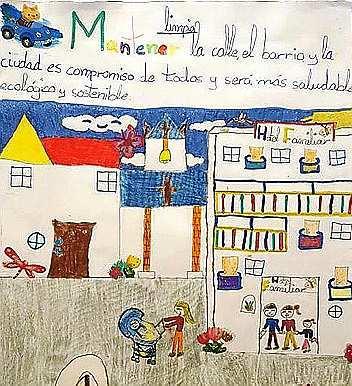 Mantener limpia la calle, el barrio y la
ciudad es compromiso de todos y será más saludable
ecológica y sostenible.
Hotel Familiar
Hotel
Familiar